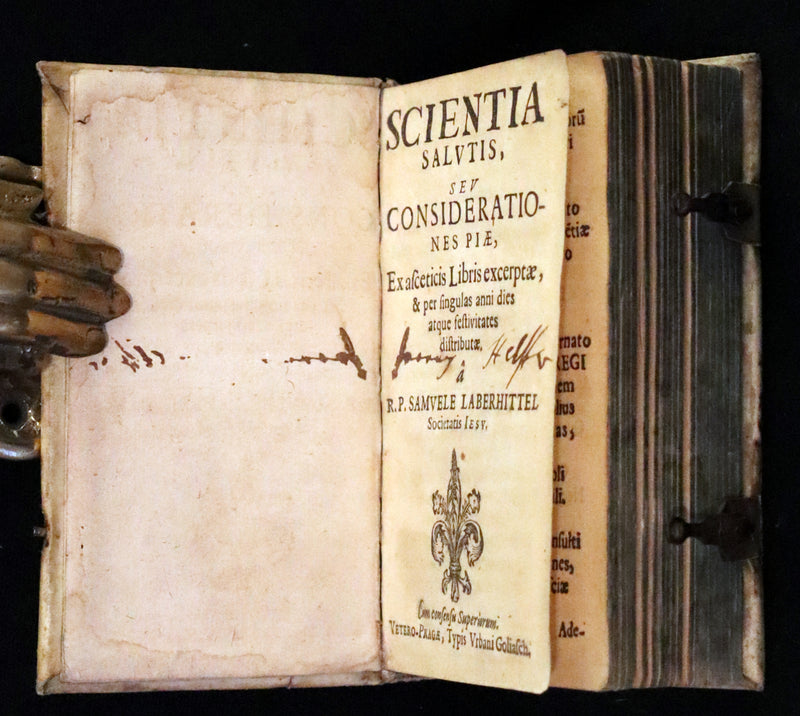 SCIENTIA
SALVTIS,
SEV
CONSIDERATIO-
NES PIÆ,
Ex asceticis Libris excerptæ,
& per singulas anni dies
atque festivitates
distributæ,
à
R. P. SAMVELE LABERHITTEL
Societatis IESV.
Cum consensu Superiorum.
VETERO-PRAGÆ, Typis Vrbani Goliasch.
to
rnato
REGI
em
as,
nes,
Ade-